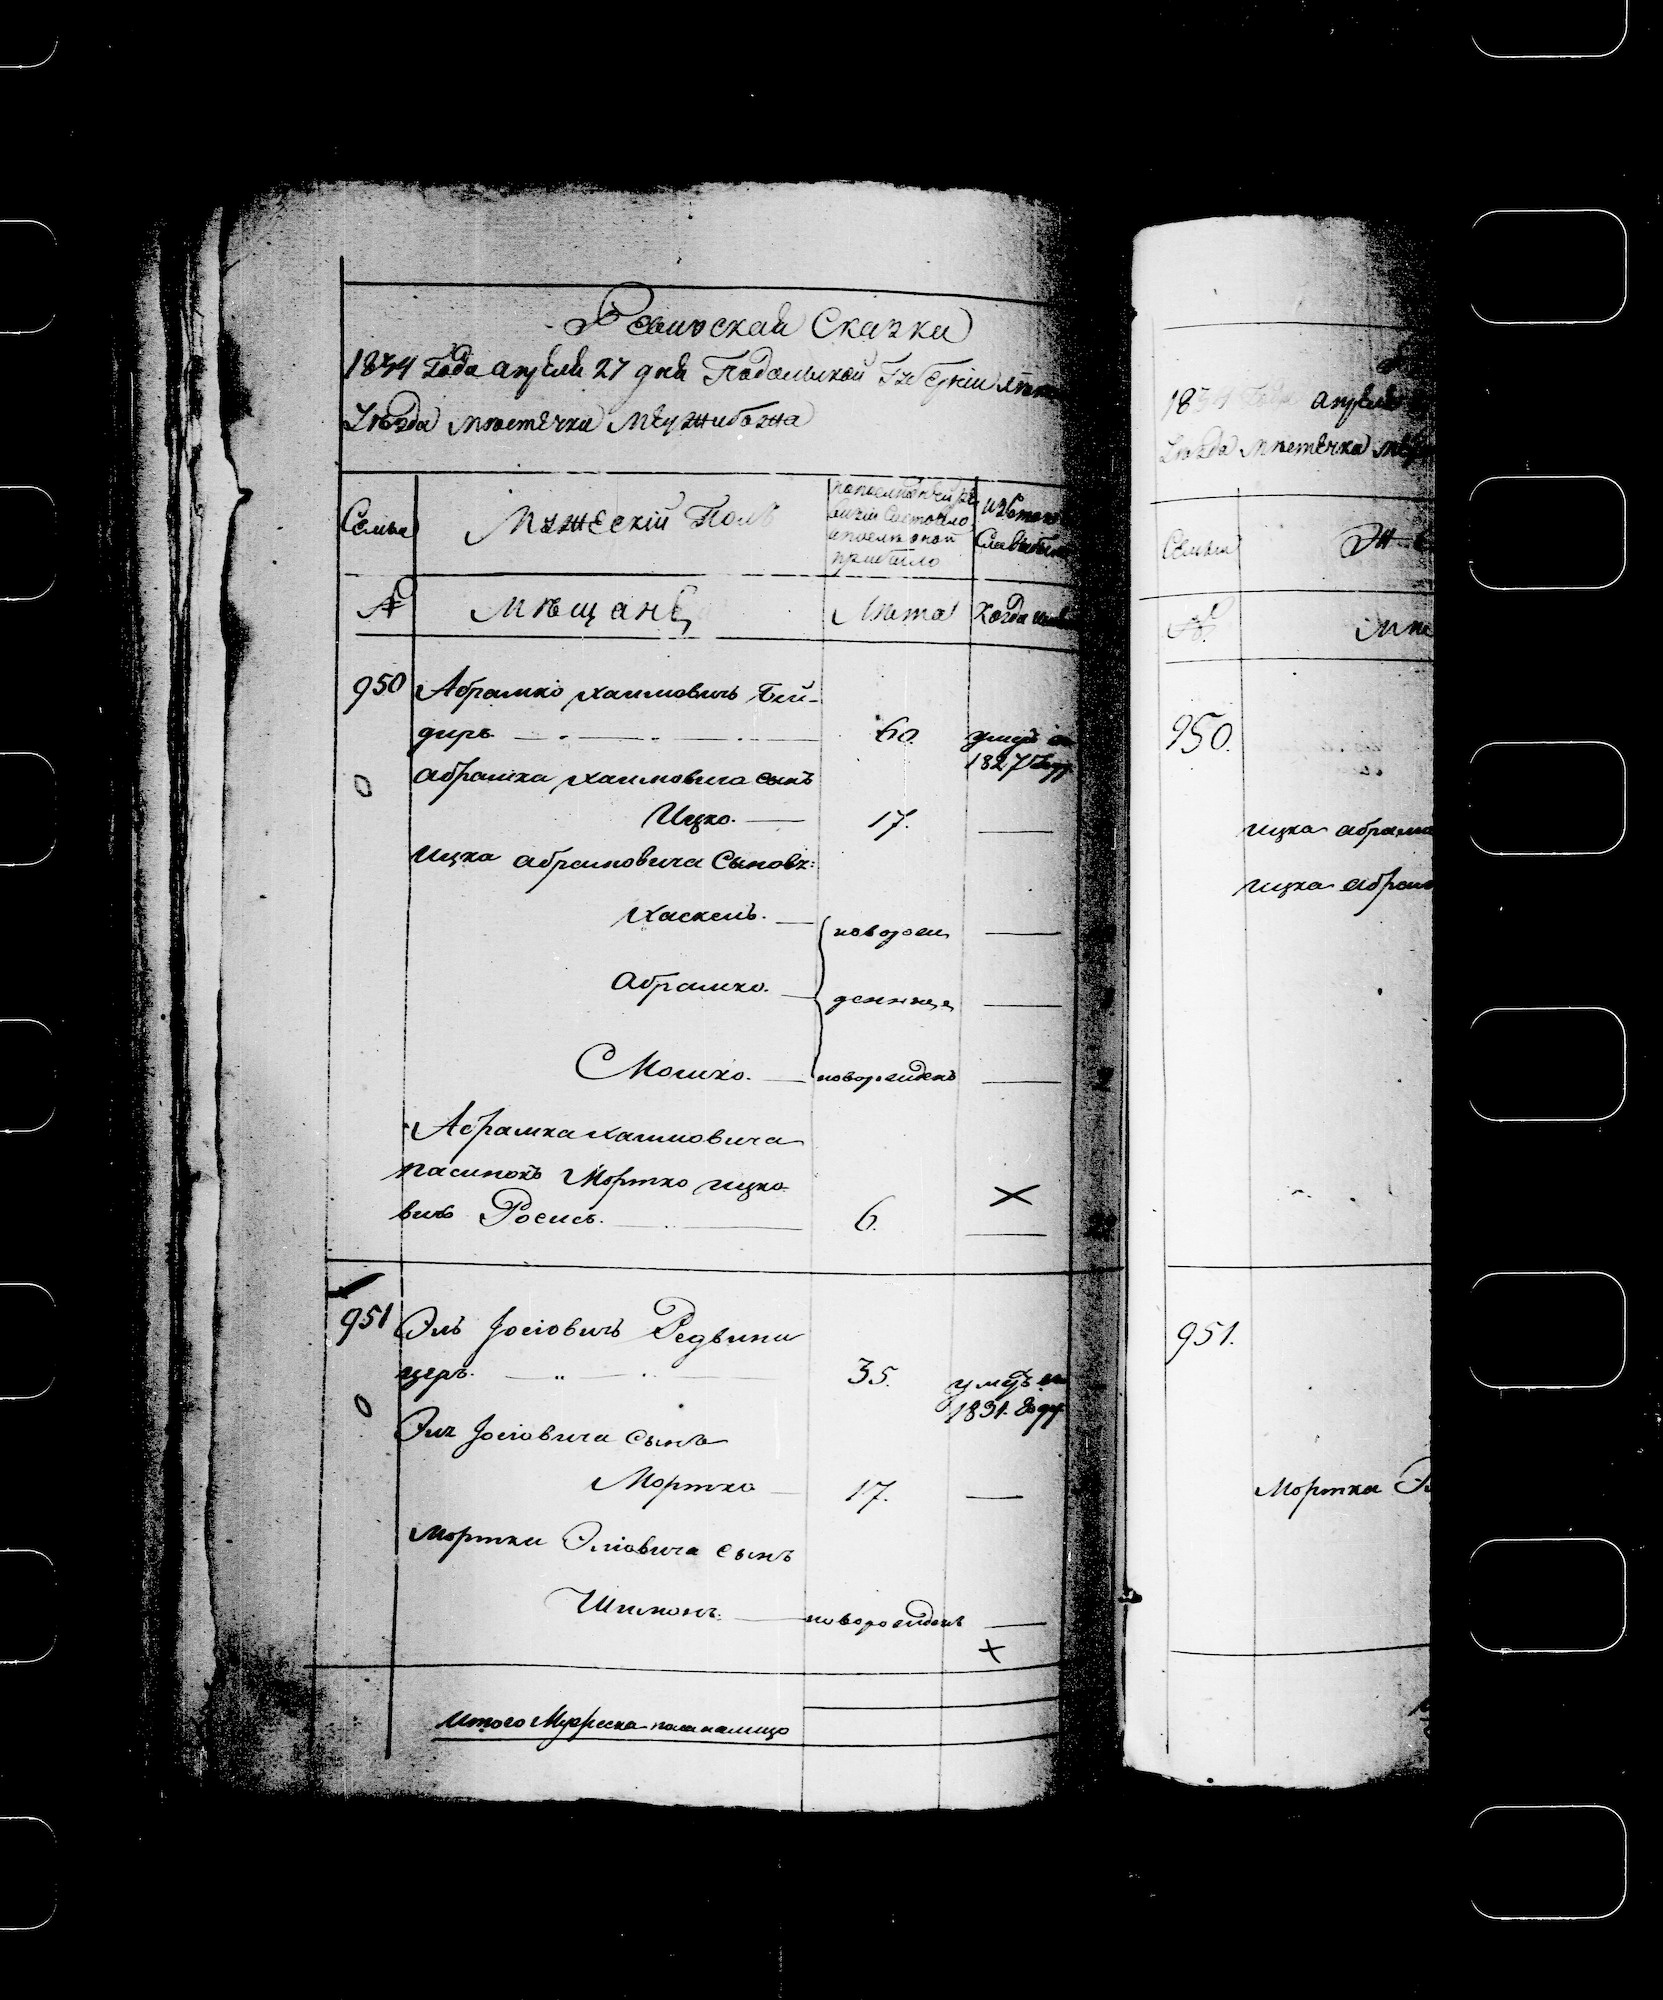 Ревизская Сказка
1834 Года апреля 27 дня Подольской Губернии
Уезда местечка Межибожа
Семьи
Мужеский Полъ
по последней ре
визіи состояло
и после оной
прибыло
изъ того
числа выбыло
№
Мещане
Лета
Когда именно
950 Абрамко Хаимовичъ Бей-
деръ 60. умеръ въ
1827 Году
Абрамка Хаимовича сынъ
Ицко. 17.
Ицка Абрамовича сыновья:
Хаскель. новорож
Абрамко. денные
Мошко. новорожденъ
Абрамка Хаимовича
пасынокъ Мортко Ицко-
вичъ 6.
951 Эль Іосіовичъ Редвини
церъ. 35. умеръ въ
1831. Году
Эля Іосіовича сынъ
Мортко 17.
Мортки Эліовича сынъ
Шимонъ. новорожденъ
Итого Мужеска пола налицо
1834 Года апреля
Уезда местечка
Семьи
№.
950.
Ицка Абрам
Ицка Абрам
951.
Мортка Э